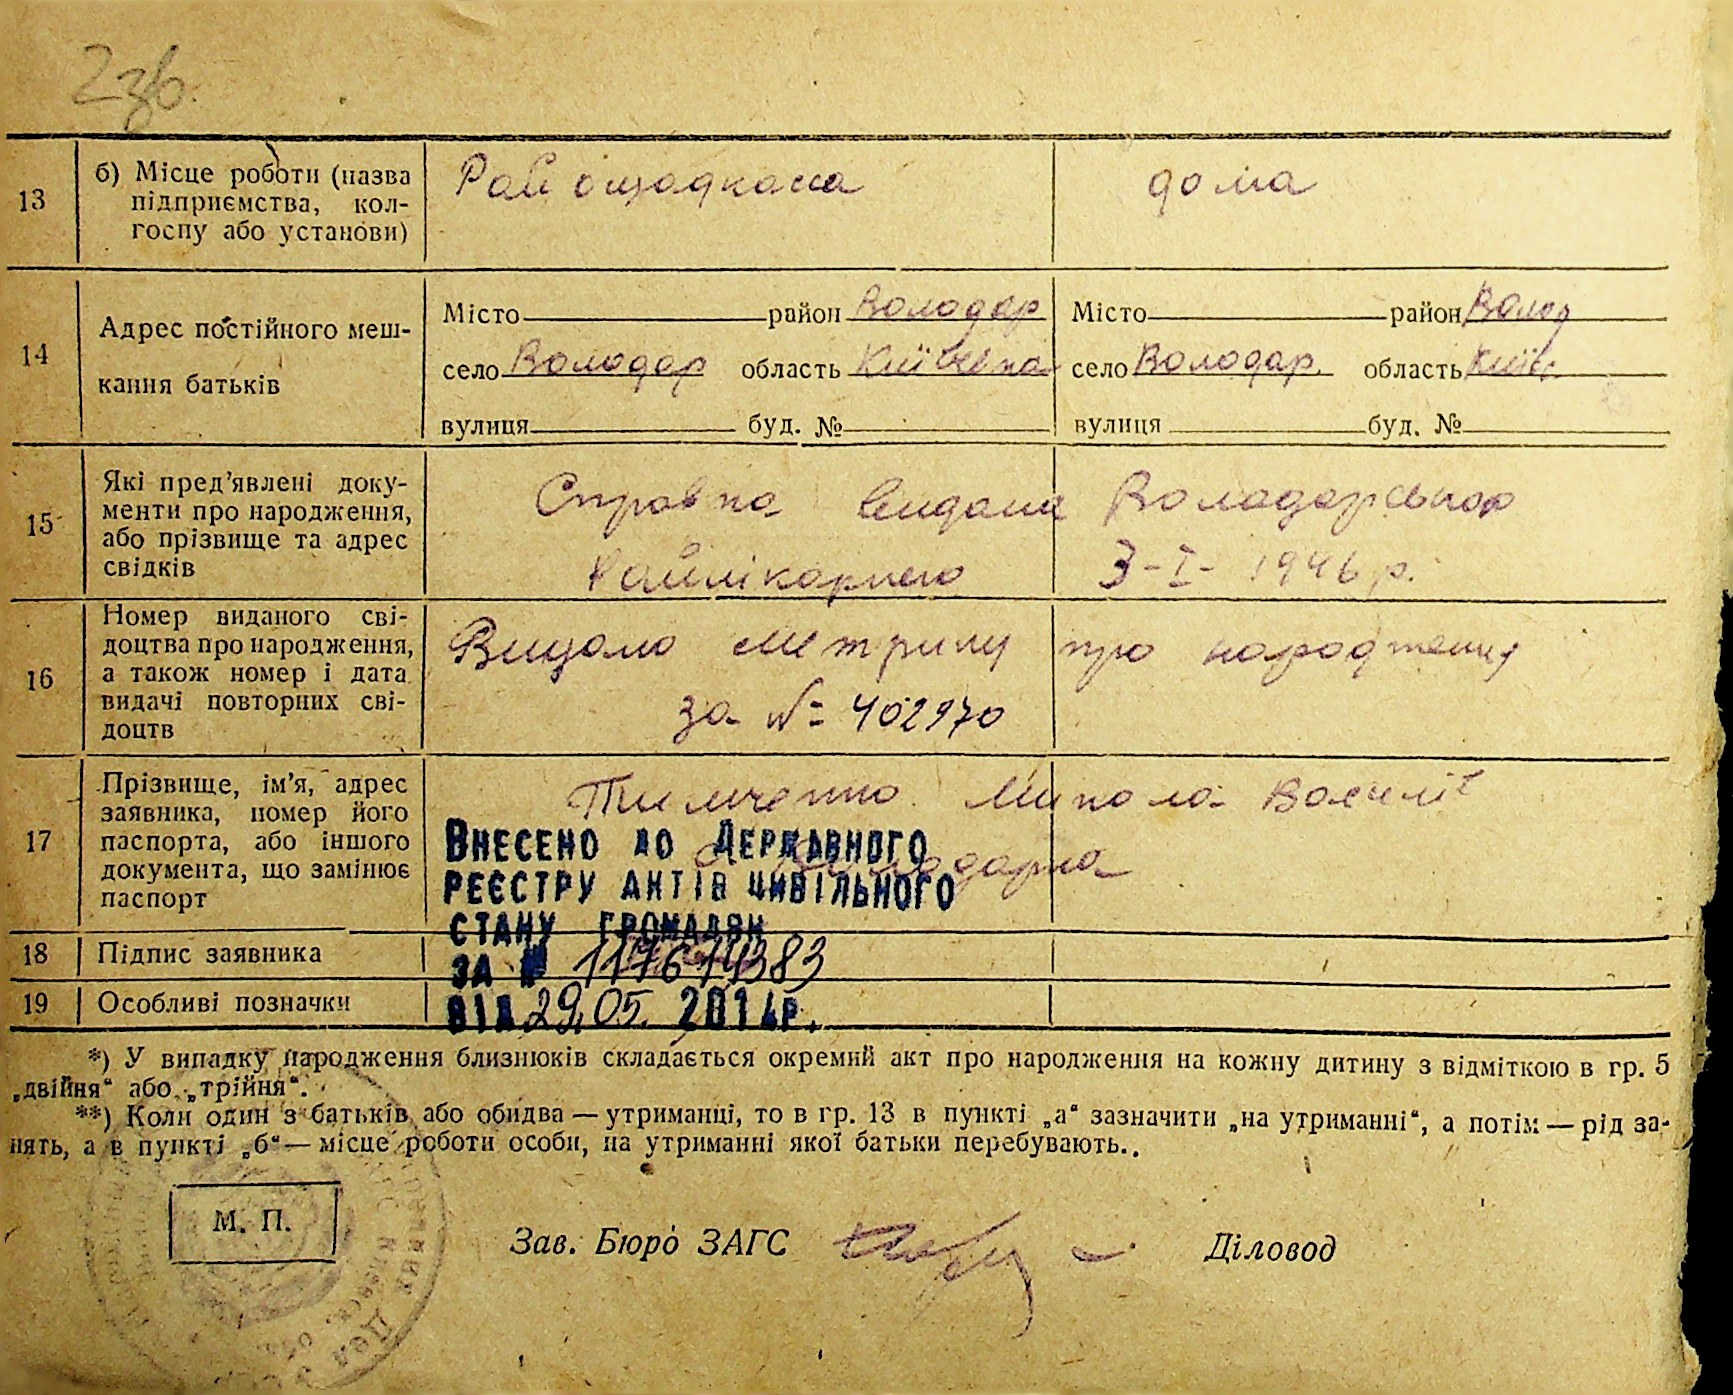 2зв.
13
б) Місце роботи (назва
підприємства, кол-
госпу або установи)
Рай ощадкаса
дома
14
Адрес постійного меш-
кання батьків
Місто район Володар
село Володар область Київська
вулиця буд. №
Місто район Волод
село Володар. область Київс
вулиця буд. №
15
Які пред'явлені доку-
менти про народження,
або прізвище та адрес
свідків
Справка видана Володарською
Райлікарнею 3-I- 1946 р.
16
Номер виданого сві-
доцтва про народження,
а також номер і дата
видачі повторних сві-
доцтв
Видано метрику про народження
за № 402970
17
Прізвище, ім'я, адрес
заявника, номер його
паспорта, або іншого
документа, що замінює
паспорт
Тимченко Микола Василів
Володарка
ВНЕСЕНО ДО ДЕРЖАВНОГО
РЕЄСТРУ АКТІВ ЦИВІЛЬНОГО
СТАНУ ГРОМАДЯН
ЗА № 117614383
ВІД 29.05. 2014р.
18
Підпис заявника
19
Особливі позначки
*) У випадку народження близнюків складається окремий акт про народження на кожну дитину з відміткою в гр. 5
„двійня“ або „трійня“.
**) Коли один з батьків або обидва — утриманці, то в гр. 13 в пункті „а“ зазначити „на утриманні“, а потім — рід за-
нять, а в пункті „б“ — місце роботи особи, на утриманні якої батьки перебувають..
М. П.
Зав. Бюро ЗАГС
Діловод